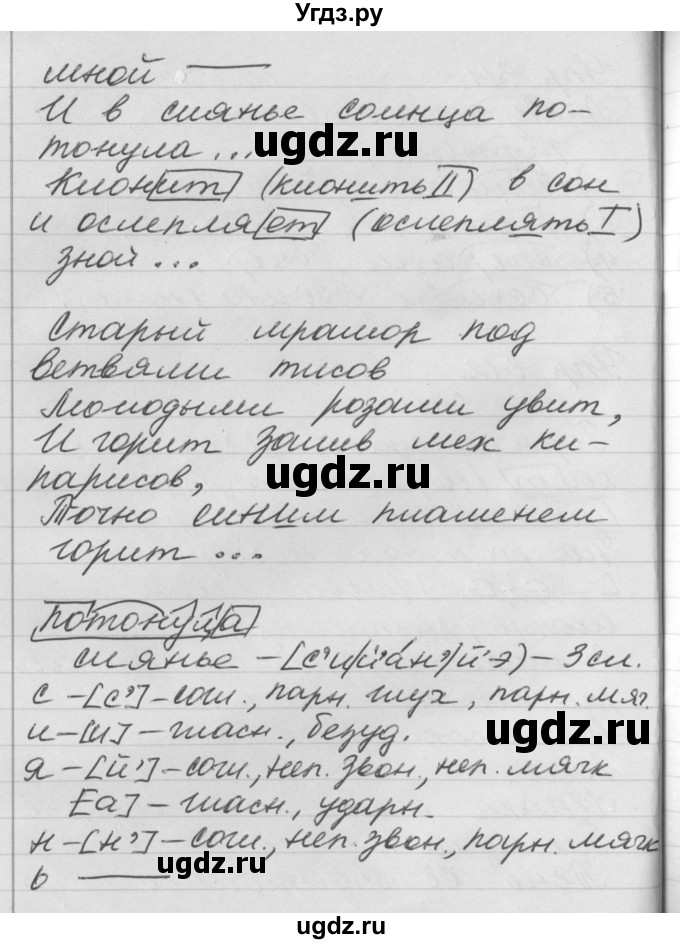 Угдз.ру
мной —
И в сиянье солнца по-
тонула ...
Клонит (клонить II) в сон
и ослепляет (ослеплять I)
зной ...
Старый мрамор под
ветвями тисов
Молодыми розами увит,
И горит залив меж ки-
парисов,
Точно синим пламенем
горит ...
потонула
сиянье – [с'и|й'а́н'|й'э) – 3 сл.
с – [с'] – согл., парн. глух, парн. мяг.
и – [и] – гласн., безуд.
я – [й'] – согл., неп. звон, неп. мягк
[а] – гласн., ударн.
н – [н'] – согл., неп. звон., парн. мягк
ь —
ugdz.ru
ugdz.ru
ugdz.ru
ugdz.ru
ugdz.ru
ugdz.ru
ugdz.ru